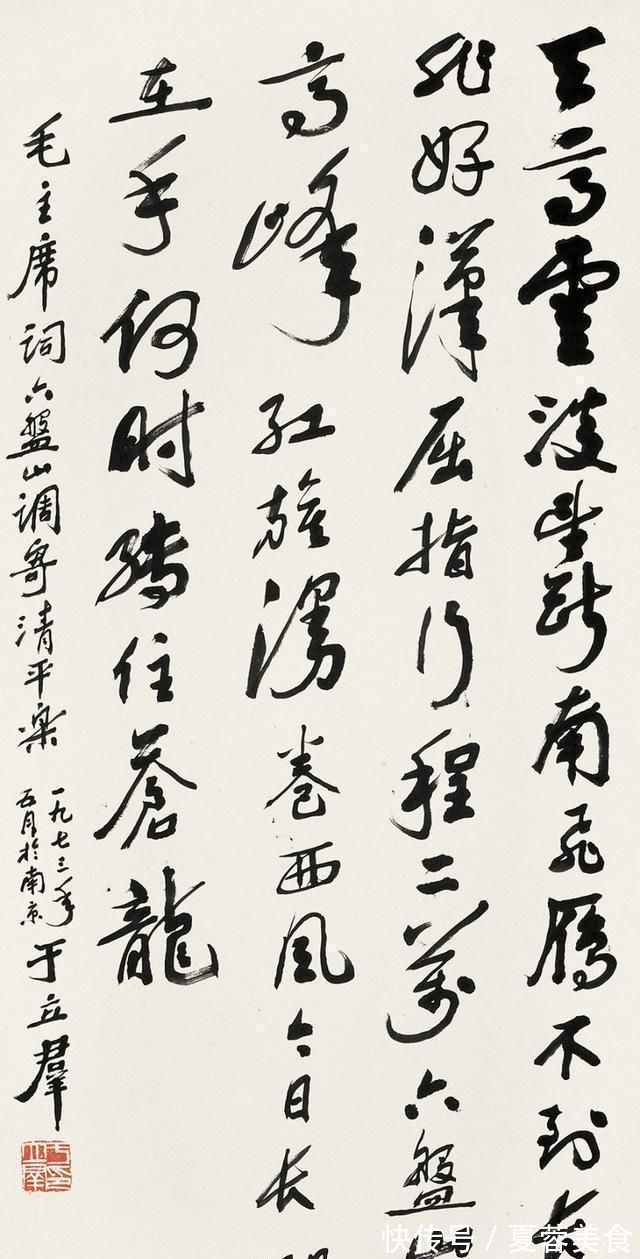 天高雲淡望斷南飛雁不到长
非好漢屈指行程二萬六盤
高峰红旗漫卷西風今日长
在手何时縛住蒼龍
毛主席词六盤山调寄清平樂
一九七三年
五月於南京
于立群
快传号 / 夏蓉美食